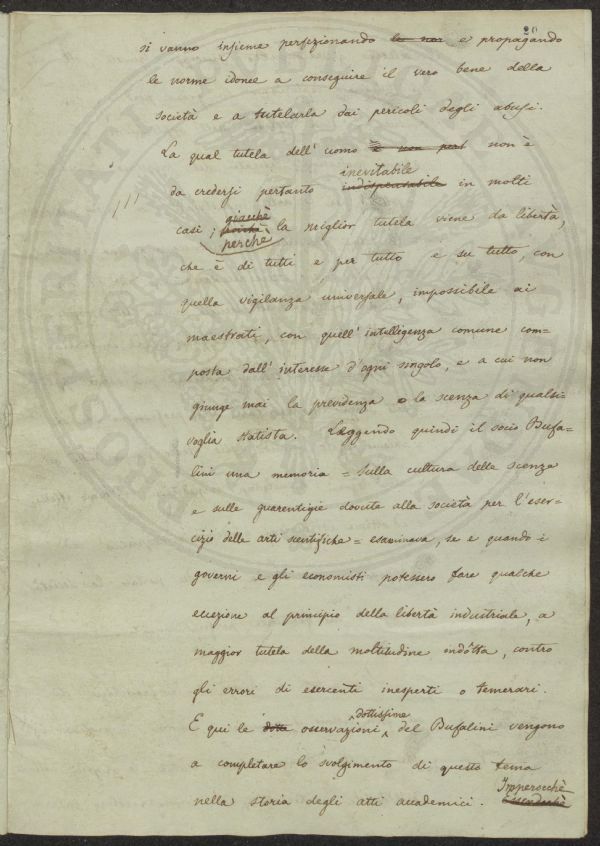 20
si vanno insieme perfezionando le nor e propagando
le norme idonee a conseguire il vero bene della
società e a tutelarla dai pericoli degli abusi.
La qual tutela dell'uomo è non per non è
inevitabile
da credersi pertanto indispensabile in molti
giacchè
casi; poichè la miglior tutela viene da libertà,
perchè
che è di tutti e per tutto e su tutto, con
quella vigilanza universale, impossibile ai
maestrati, con quell'intelligenza comune com=
posta dall'interesse d'ogni singolo, e a cui non
giunge mai la previdenza o la scenza di qualsi=
voglia statista. Leggendo quindi il socio Bufa=
lini una memoria = Sulla cultura della scenza
e sulle guarentigie dovute alla società per l'eser=
cizio delle arti scentifiche = esaminava, se e quando i
governi e gli economisti potessero fare qualche
eccezione al principio della libertà industriale, a
maggior tutela della moltitudine indòtta, contro
gli errori di esercenti inesperti o temerari.
dottissime
E qui le dotte osservazioni del Bufalini vengono
a completare lo svolgimento di questo tema
Imperocchè
nella storia degli atti accademici.